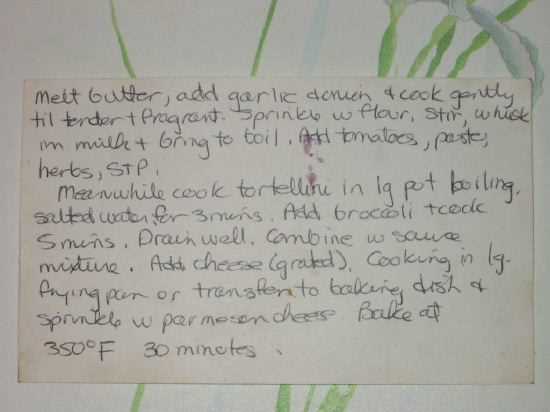 Melt butter, add garlic & onion & cook gently
til tender + fragrant. Sprinkle w flour, stir, whisk
in milk + bring to boil. Add tomatoes, paste,
herbs, S+P.
Meanwhile cook tortellini in lg pot boiling,
salted water for 3 mins. Add broccoli + cook
5 mins. Drain well. Combine w sauce
mixture. Add cheese (grated). Cooking in lg.
frying pan or transfer to baking dish &
sprinkle w parmesan cheese Bake at
350°F 30 minutes.